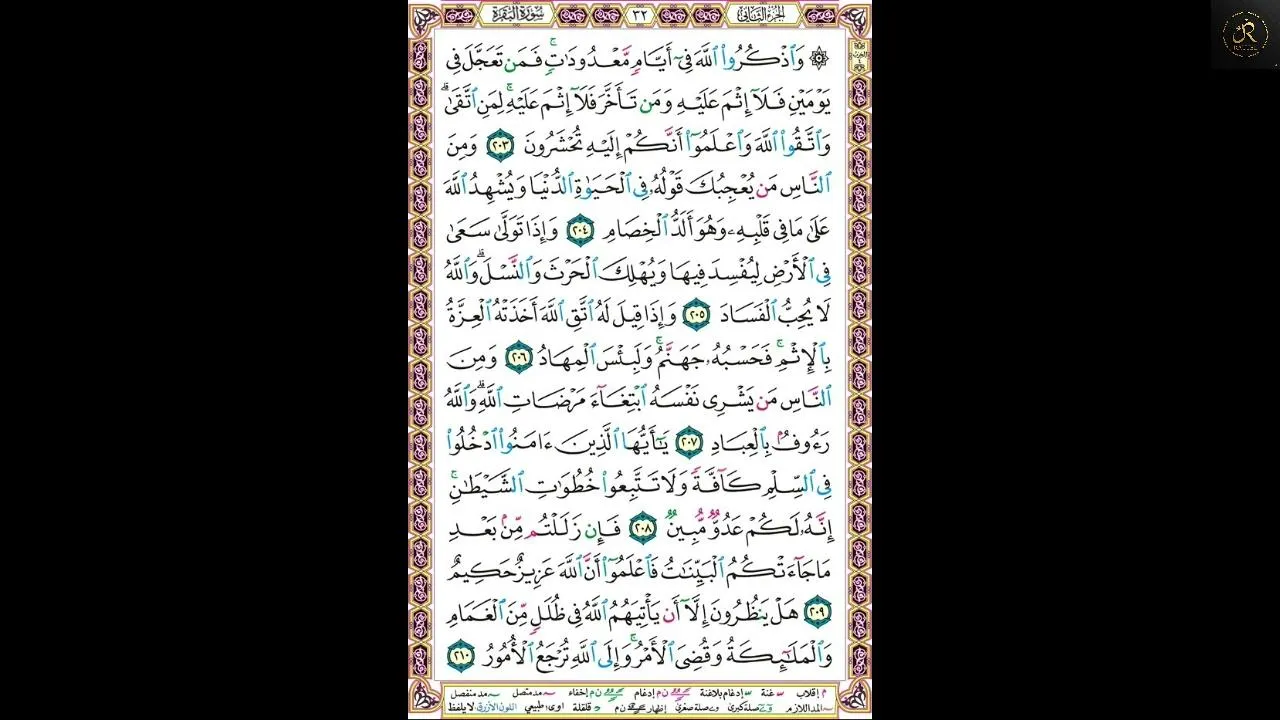 سُورَةُ الْبَقَرَةِ ٣٢ الجُزْءُ الثَّانِي
۞ وَٱذْكُرُوا۟ ٱللَّهَ فِىٓ أَيَّامٍ مَّعْدُودَٰتٍ ۚ فَمَن تَعَجَّلَ فِى
يَوْمَيْنِ فَلَآ إِثْمَ عَلَيْهِ وَمَن تَأَخَّرَ فَلَآ إِثْمَ عَلَيْهِ ۚ لِمَنِ ٱتَّقَىٰ ۗ
وَٱتَّقُوا۟ ٱللَّهَ وَٱعْلَمُوٓا۟ أَنَّكُمْ إِلَيْهِ تُحْشَرُونَ ٢٠٣ وَمِنَ
ٱلنَّاسِ مَن يُعْجِبُكَ قَوْلُهُۥ فِى ٱلْحَيَوٰةِ ٱلدُّنْيَا وَيُشْهِدُ ٱللَّهَ
عَلَىٰ مَا فِى قَلْبِهِۦ وَهُوَ أَلَدُّ ٱلْخِصَامِ ٢٠٤ وَإِذَا تَوَلَّىٰ سَعَىٰ
فِى ٱلْأَرْضِ لِيُفْسِدَ فِيهَا وَيُهْلِكَ ٱلْحَرْثَ وَٱلنَّسْلَ ۗ وَٱللَّهُ
لَا يُحِبُّ ٱلْفَسَادَ ٢٠٥ وَإِذَا قِيلَ لَهُ ٱتَّقِ ٱللَّهَ أَخَذَتْهُ ٱلْعِزَّةُ
بِٱلْإِثْمِ ۚ فَحَسْبُهُۥ جَهَنَّمُ ۚ وَلَبِئْسَ ٱلْمِهَادُ ٢٠٦ وَمِنَ
ٱلنَّاسِ مَن يَشْرِى نَفْسَهُ ٱبْتِغَآءَ مَرْضَاتِ ٱللَّهِ ۗ وَٱللَّهُ
رَءُوفٌۢ بِٱلْعِبَادِ ٢٠٧ يَٰٓأَيُّهَا ٱلَّذِينَ ءَامَنُوا۟ ٱدْخُلُوا۟
فِى ٱلسِّلْمِ كَآفَّةً وَلَا تَتَّبِعُوا۟ خُطُوَٰتِ ٱلشَّيْطَٰنِ ۚ
إِنَّهُۥ لَكُمْ عَدُوٌّ مُّبِينٌ ٢٠٨ فَإِن زَلَلْتُم مِّنۢ بَعْدِ
مَا جَآءَتْكُمُ ٱلْبَيِّنَٰتُ فَٱعْلَمُوٓا۟ أَنَّ ٱللَّهَ عَزِيزٌ حَكِيمٌ
٢٠٩ هَلْ يَنظُرُونَ إِلَّآ أَن يَأْتِيَهُمُ ٱللَّهُ فِى ظُلَلٍ مِّنَ ٱلْغَمَامِ
وَٱلْمَلَٰٓئِكَةُ وَقُضِىَ ٱلْأَمْرُ ۚ وَإِلَى ٱللَّهِ تُرْجَعُ ٱلْأُمُورُ ٢١٠
م إقلاب غنة إدغام بلاغنة ن م إدغام ن م إخفاء مد متصل مد منفصل
المد اللازم صلة كبرى صلة صغرى إظهار ن م قلقلة اوى: طبيعي اللون الأزرق لا يلفظ